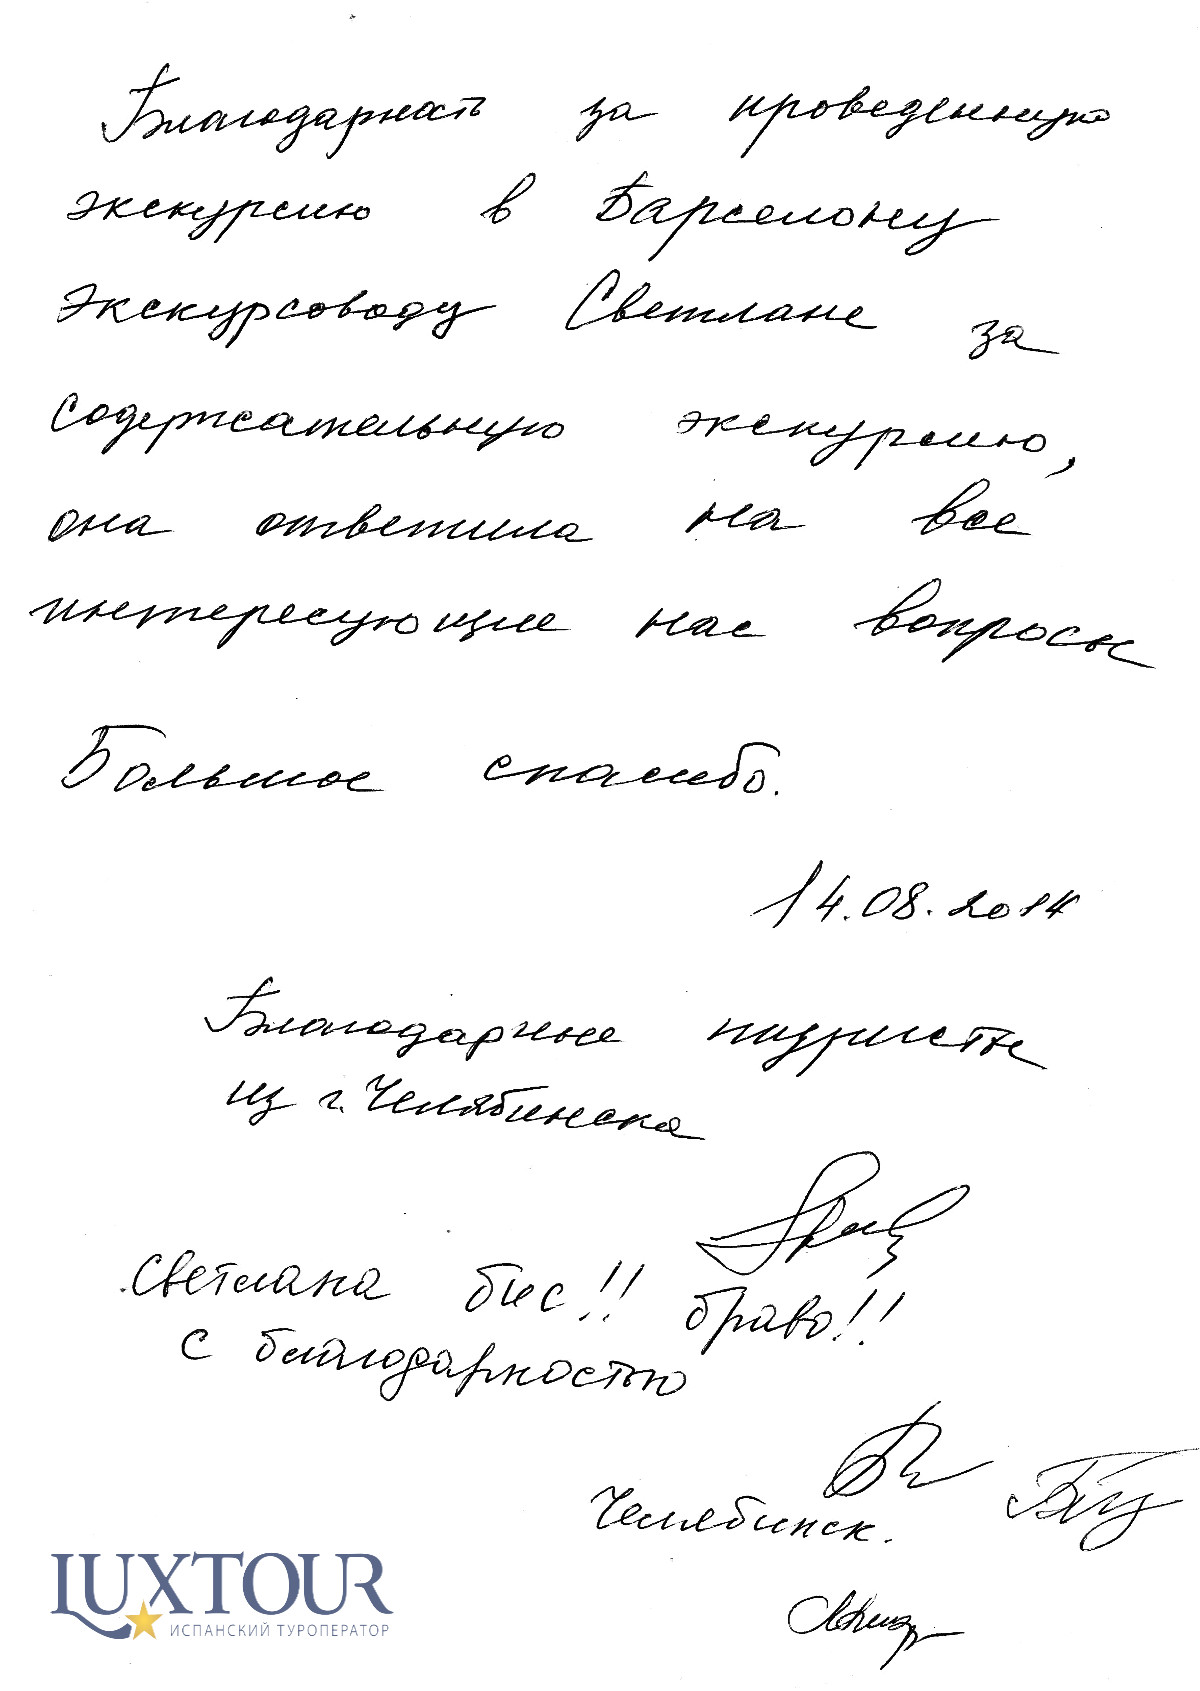 Благодарность за проведенную
экскурсию в Барселону
экскурсоводу Светлане за
содержательную экскурсию,
она ответила на все
интересующие нас вопросы
Большое спасибо.
14.08.2014
Благодарные туристы
из г. Челябинска
Светлана бис!! браво!!
с благодарностью
Челябинск.
LUXTOUR
ИСПАНСКИЙ ТУРОПЕРАТОР